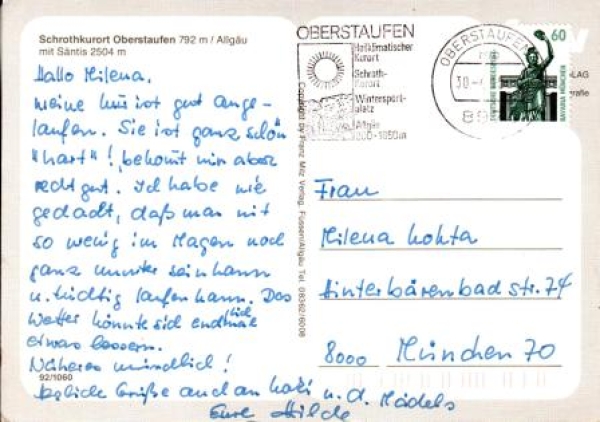 Schrothkurort Oberstaufen 792 m / Allgäu
mit Säntis 2504 m
Hallo Milena,
meine Kur ist gut ange-
laufen. Sie ist ganz schön
"hart"! bekomt mir aber
recht gut. Ich habe nie
gedacht, daß man mit
so wenig im Magen noch
ganz munter sein kann
u. tüchtig laufen kann. Das
Wetter könnte sich endlich
etwas bessern.
Näheres mündlich!
92/1060
herzliche Grüße auch an u. d. Mädels
Eure Hilde
Copyright by Franz Milz Verlag, Füssen/Allgäu Tel. 08362/6008
OBERSTAUFEN
Heilklimatischer
Kurort
Schroth-
Kurort
Wintersport-
platz
Allgäu
1850m
OBERSTAUFEN
30
89
60
DEUTSCHE BUNDESPOST
BAVARIA MÜNCHEN
Frau
Milena Kokta
Hinterbärenbad str. 74
8000 München 70